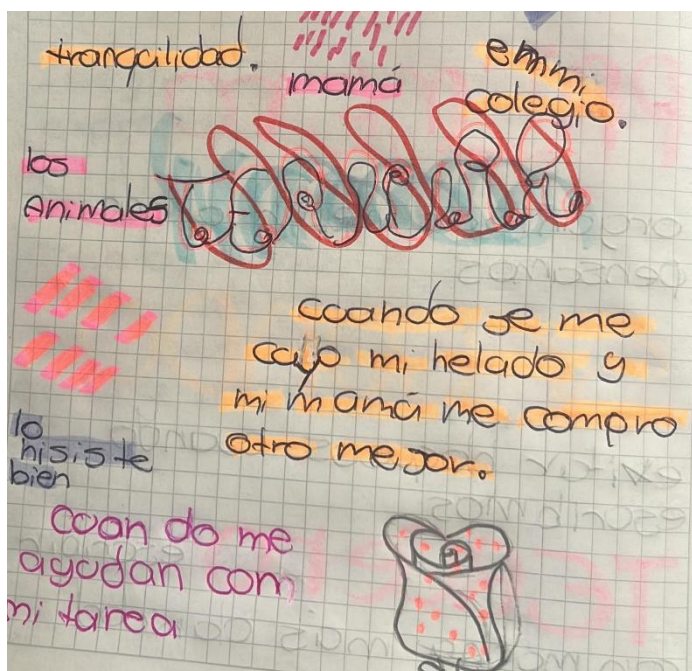 tranquilidad.
mamá
emmi
colegio.
los
Animales
Ternura
coando se me
cayo mi helado y
mi mamá me compro
otro mejor.
lo
hisiste
bien
coan do me
ayudan com
mi tarea